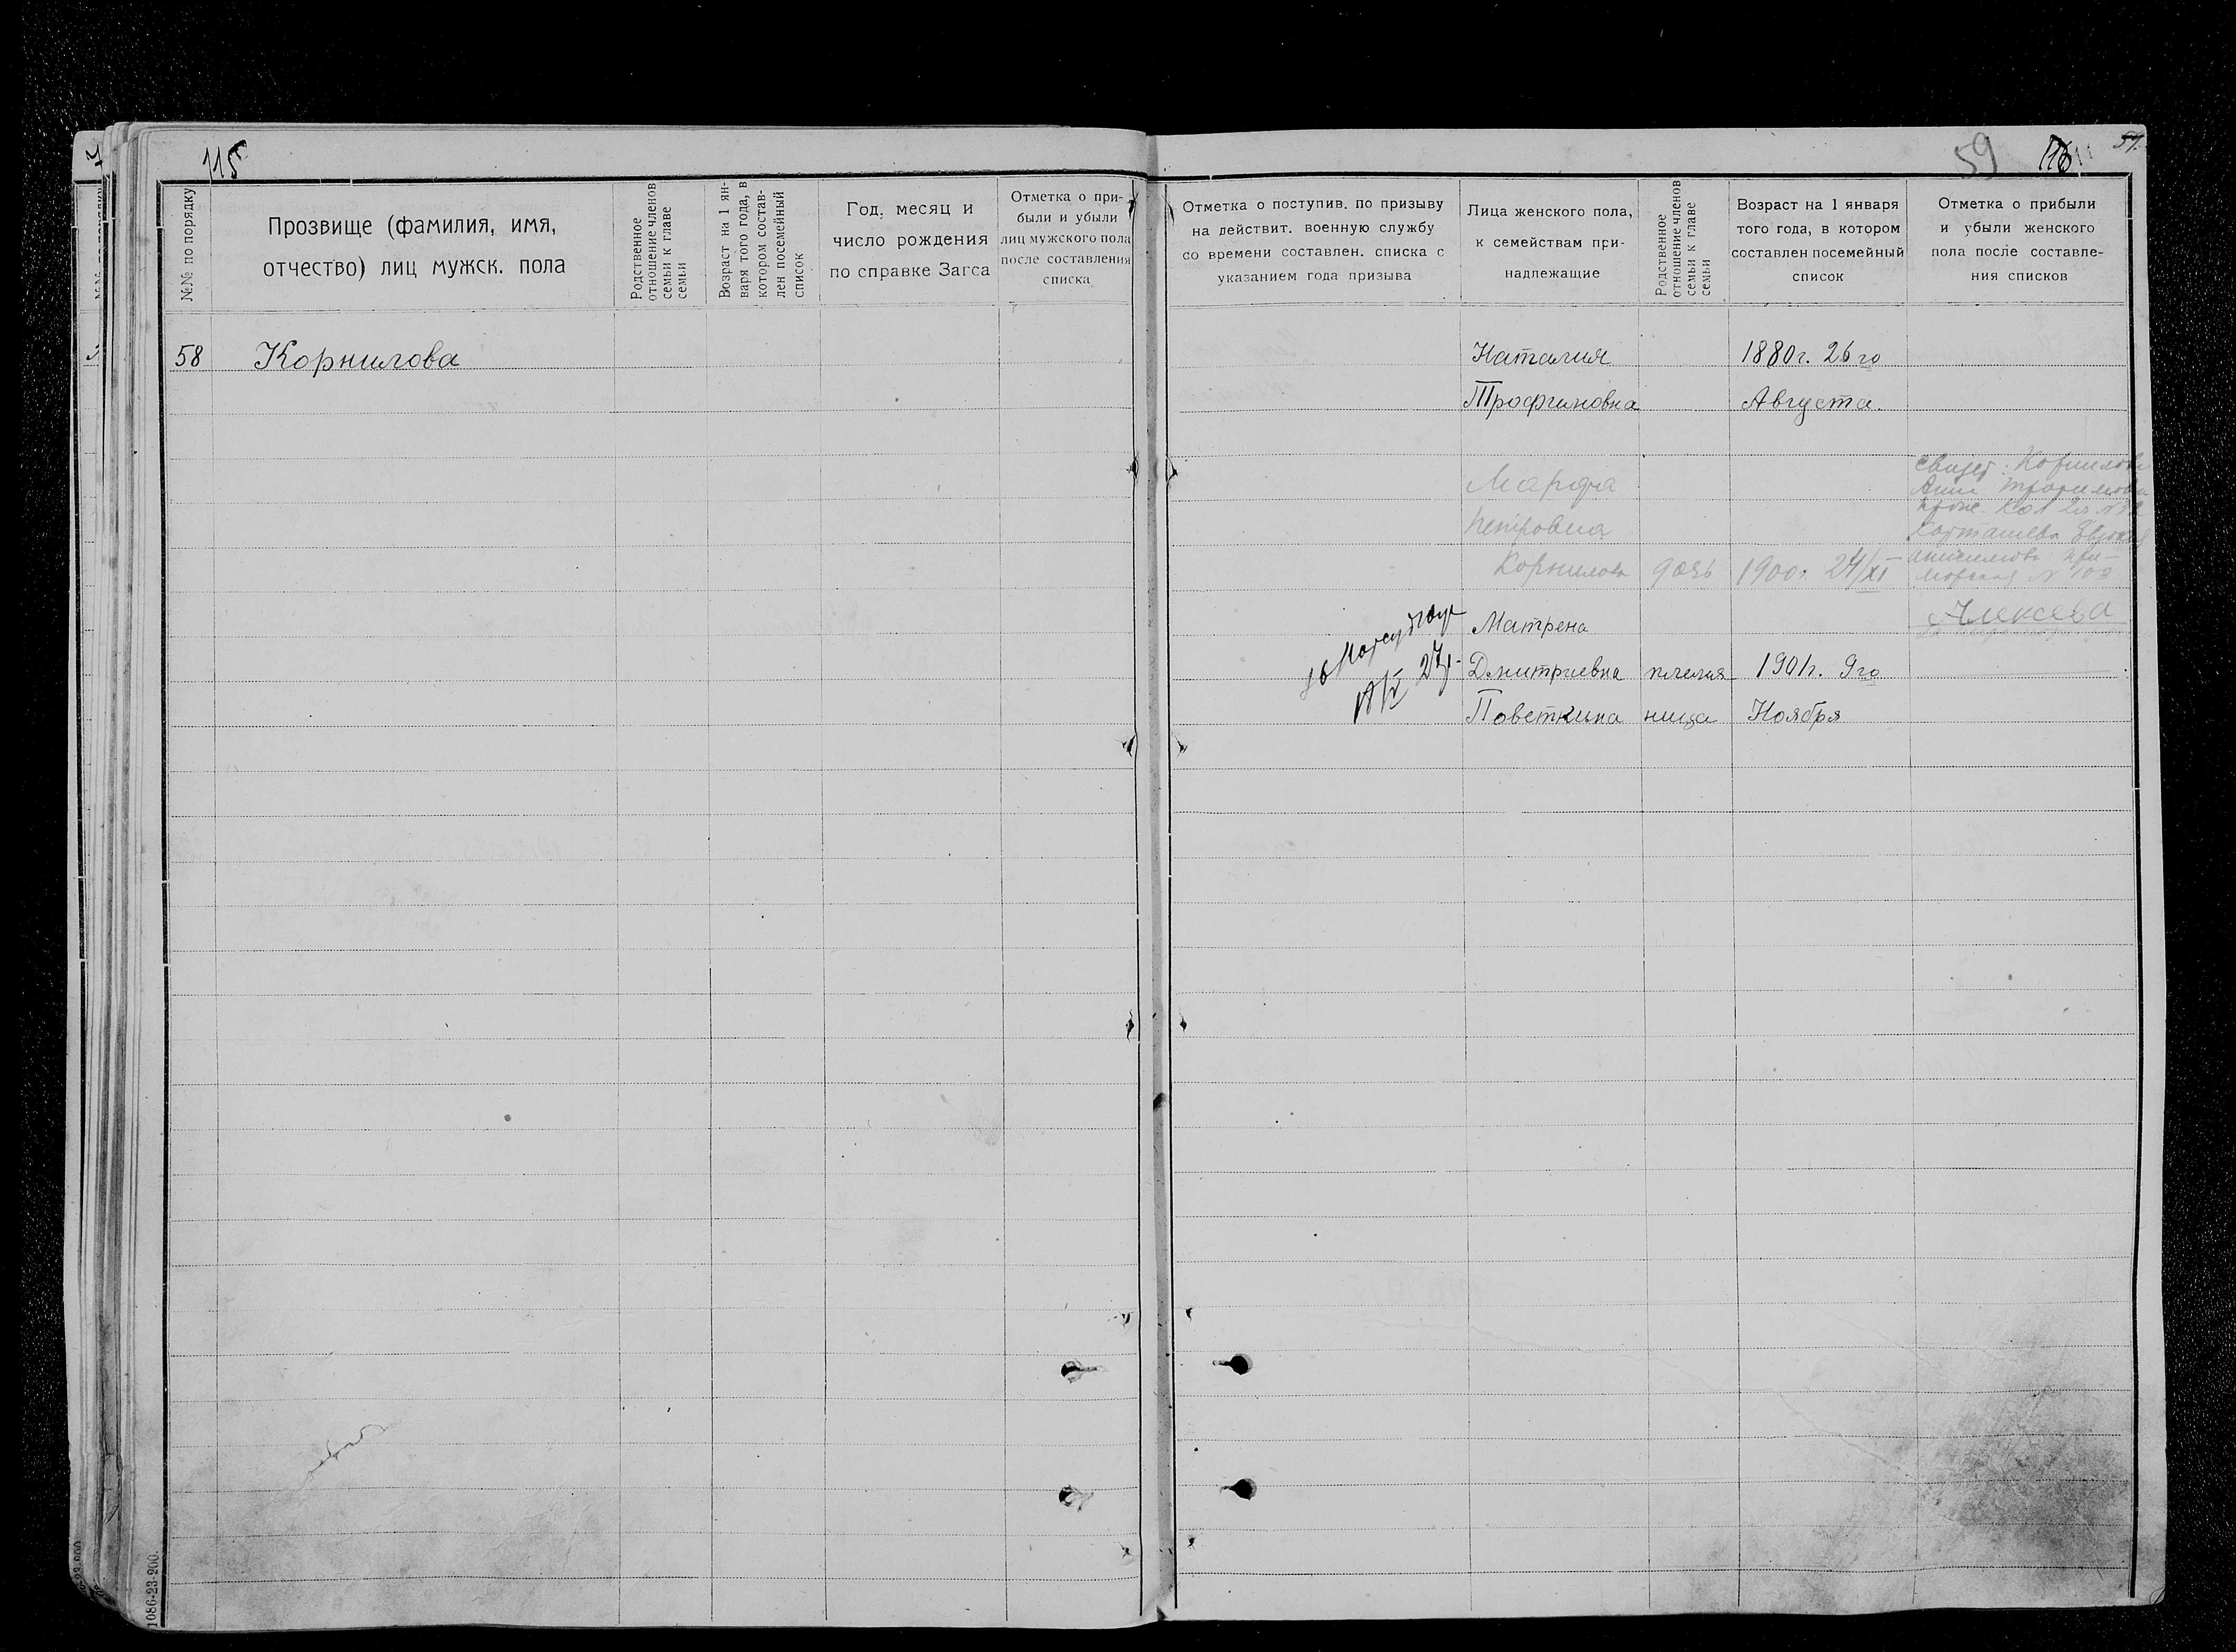 115
№№ по порядку
Прозвище (фамилия, имя,
отчество) лиц мужск. пола
Родственное
отношение членов
семьи к главе
семьи
Возраст на 1 ян-
варя того года, в
котором состав-
лен посемейный
список
Год, месяц и
число рождения
по справке Загса
Отметка о при-
были и убыли
лиц мужского пола
после составления
списка
58 Корнилова
1086-23-200.
59 116
Отметка о поступив. по призыву
на действит. военную службу
со времени составлен. списка с
указанием года призыва
Лица женского пола,
к семействам при-
надлежащие
Родственное
отношение членов
семьи к главе
семьи
Возраст на 1 января
того года, в котором
составлен посемейный
список
Отметка о прибыли
и убыли женского
пола после составле-
ния списков
Наталия 1880 г. 26 го
Трофимовна Августа.
Марфа
Петровна
Корнилова дочь 1900 г. 24/XI
Свидет: Корнилова
Анна
Карташева
№ 103
Алексева
Матрена
Дмитриевна племя 1901 г. 9 го
Поветкина ница Ноября
27 г.